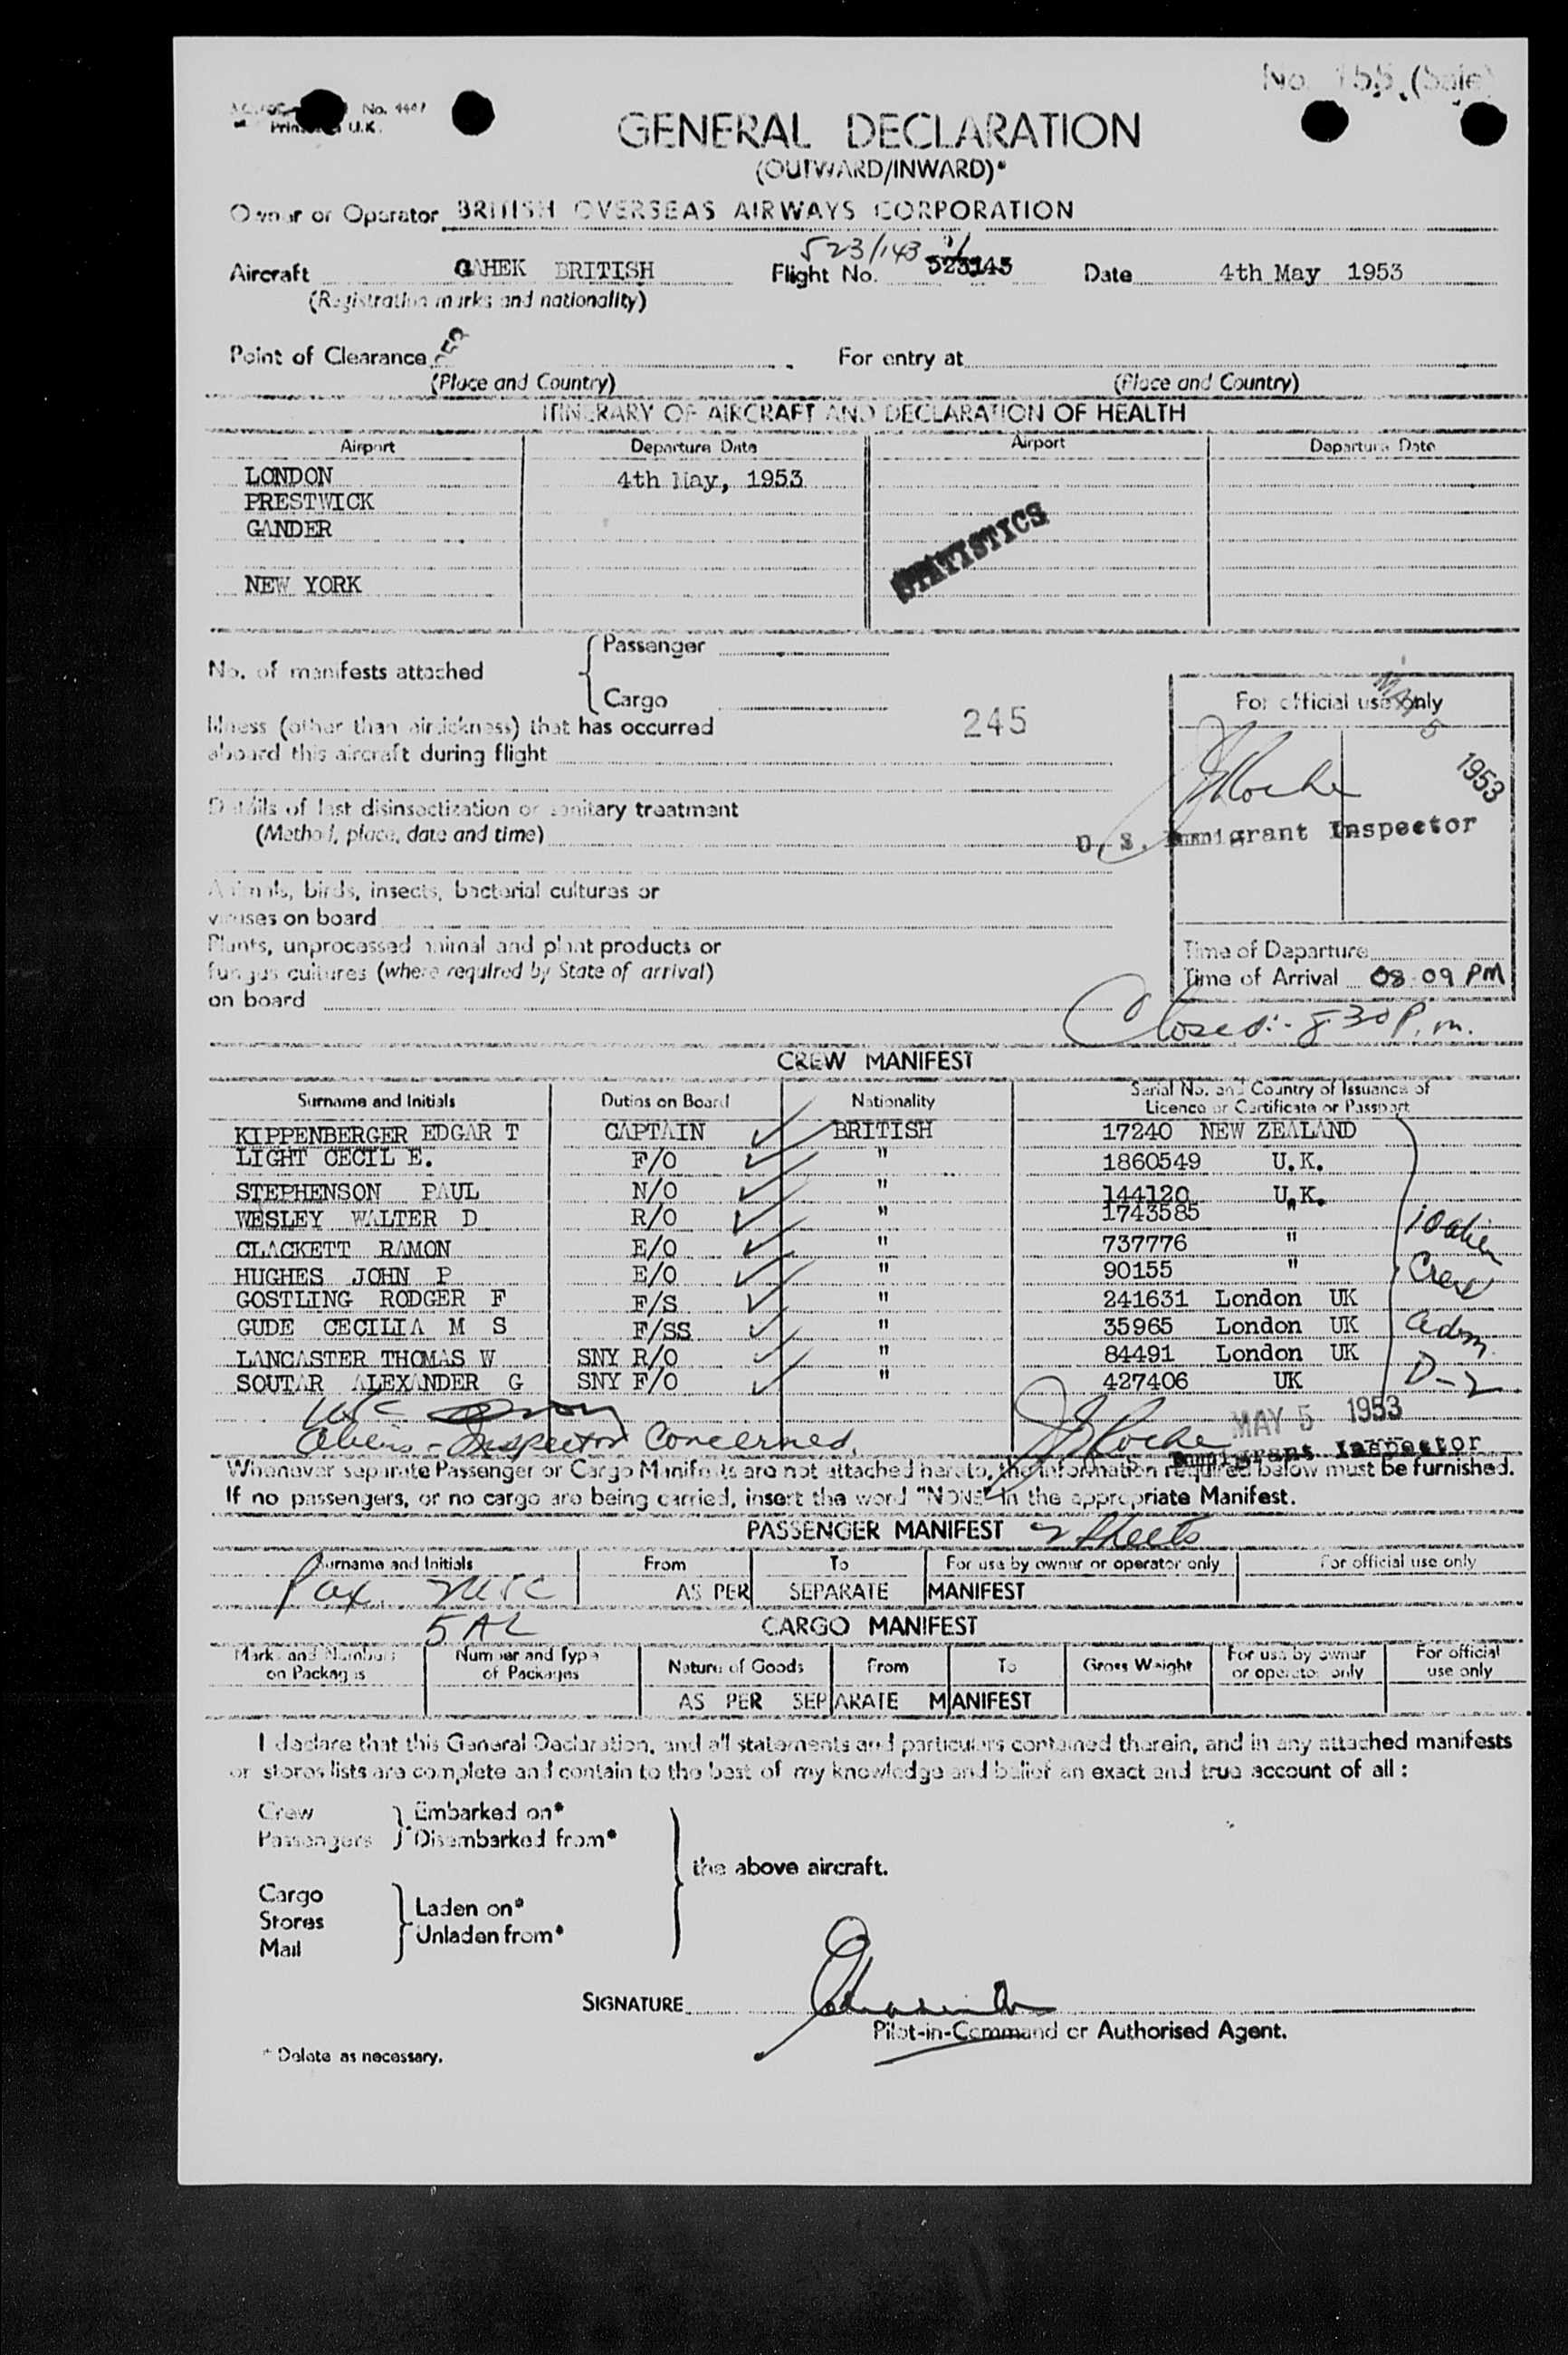 No. 155 (Sale)
No. 4447
U.K.
GENERAL DECLARATION
(OUTWARD/INWARD)*
Owner or Operator BRITISH OVERSEAS AIRWAYS CORPORATION
523/143
Aircraft GAHEK BRITISH Flight No. 523143 Date 4th May 1953
(Registration marks and nationality)
Point of Clearance For entry at
(Place and Country) (Place and Country)
ITINERARY OF AIRCRAFT AND DECLARATION OF HEALTH
Airport Departure Date Airport Departure Date
LONDON 4th May, 1953
PRESTWICK
GANDER
STATISTICS
NEW YORK
No. of manifests attached { Passenger
Cargo
For official use only
MAY 5 1953
Illness (other than airsickness) that has occurred 245
aboard this aircraft during flight
Details of last disinsectization or sanitary treatment
(Method, place, date and time)
JRoche
U. S. Immigrant Inspector
Animals, birds, insects, bacterial cultures or
viruses on board
Plants, unprocessed animal and plant products or
fungus cultures (where required by State of arrival)
on board
Time of Departure
Time of Arrival 08 09 PM
Closed:- 8 30 P.m.
CREW MANIFEST
Surname and Initials Duties on Board Nationality Serial No. and Country of Issuance of Licence or Certificate or Passport
KIPPENBERGER EDGAR T CAPTAIN BRITISH 17240 NEW ZEALAND
LIGHT CECIL E. F/O " 1860549 U.K.
STEPHENSON PAUL N/O " 144120 U.K.
WESLEY WALTER D R/O " 1743585 "
CLACKETT RAMON E/O " 737776 "
HUGHES JOHN P E/O " 90155 "
GOSTLING RODGER F F/S " 241631 London UK
GUDE CECILIA M S F/SS " 35965 London UK
LANCASTER THOMAS W SNY R/O " 84491 London UK
SOUTAR ALEXANDER G SNY F/O " 427406 UK
10 alien
Crew
adm
D-2
MAY 5 1953
Aliens - Inspector Concerned. JRoche
Immigrant Inspector
Whenever separate Passenger or Cargo Manifests are not attached hereto, the information required below must be furnished.
If no passengers, or no cargo are being carried, insert the word "NONE" in the appropriate Manifest.
PASSENGER MANIFEST 2 sheets
Surname and Initials From To For use by owner or operator only For official use only
Pax AS PER SEPARATE MANIFEST
5 AL
CARGO MANIFEST
Marks and Numbers on Packages Number and Type of Packages Nature of Goods From To Gross Weight For use by owner or operator only For official use only
AS PER SEPARATE MANIFEST
I declare that this General Declaration, and all statements and particulars contained therein, and in any attached manifests
or stores lists are complete and contain to the best of my knowledge and belief an exact and true account of all :
Crew Embarked on*
Passengers Disembarked from*
the above aircraft.
Cargo Laden on*
Stores Unladen from*
Mail
SIGNATURE
Pilot-in-Command or Authorised Agent.
* Delete as necessary.